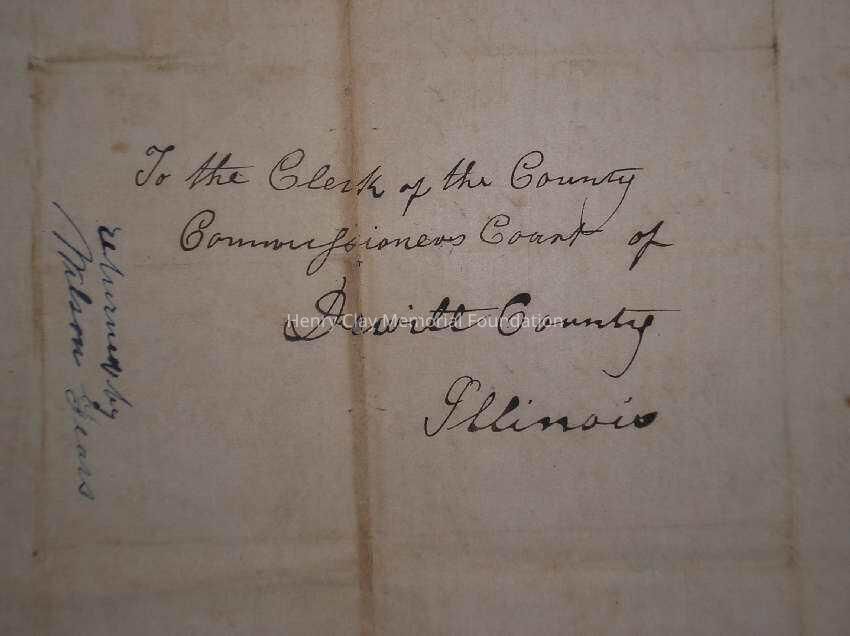 To the Clerk of the County
Commissioners Court of
Dewitt County
Illinois
returned by
Wilson
Henry Clay Memorial Foundation